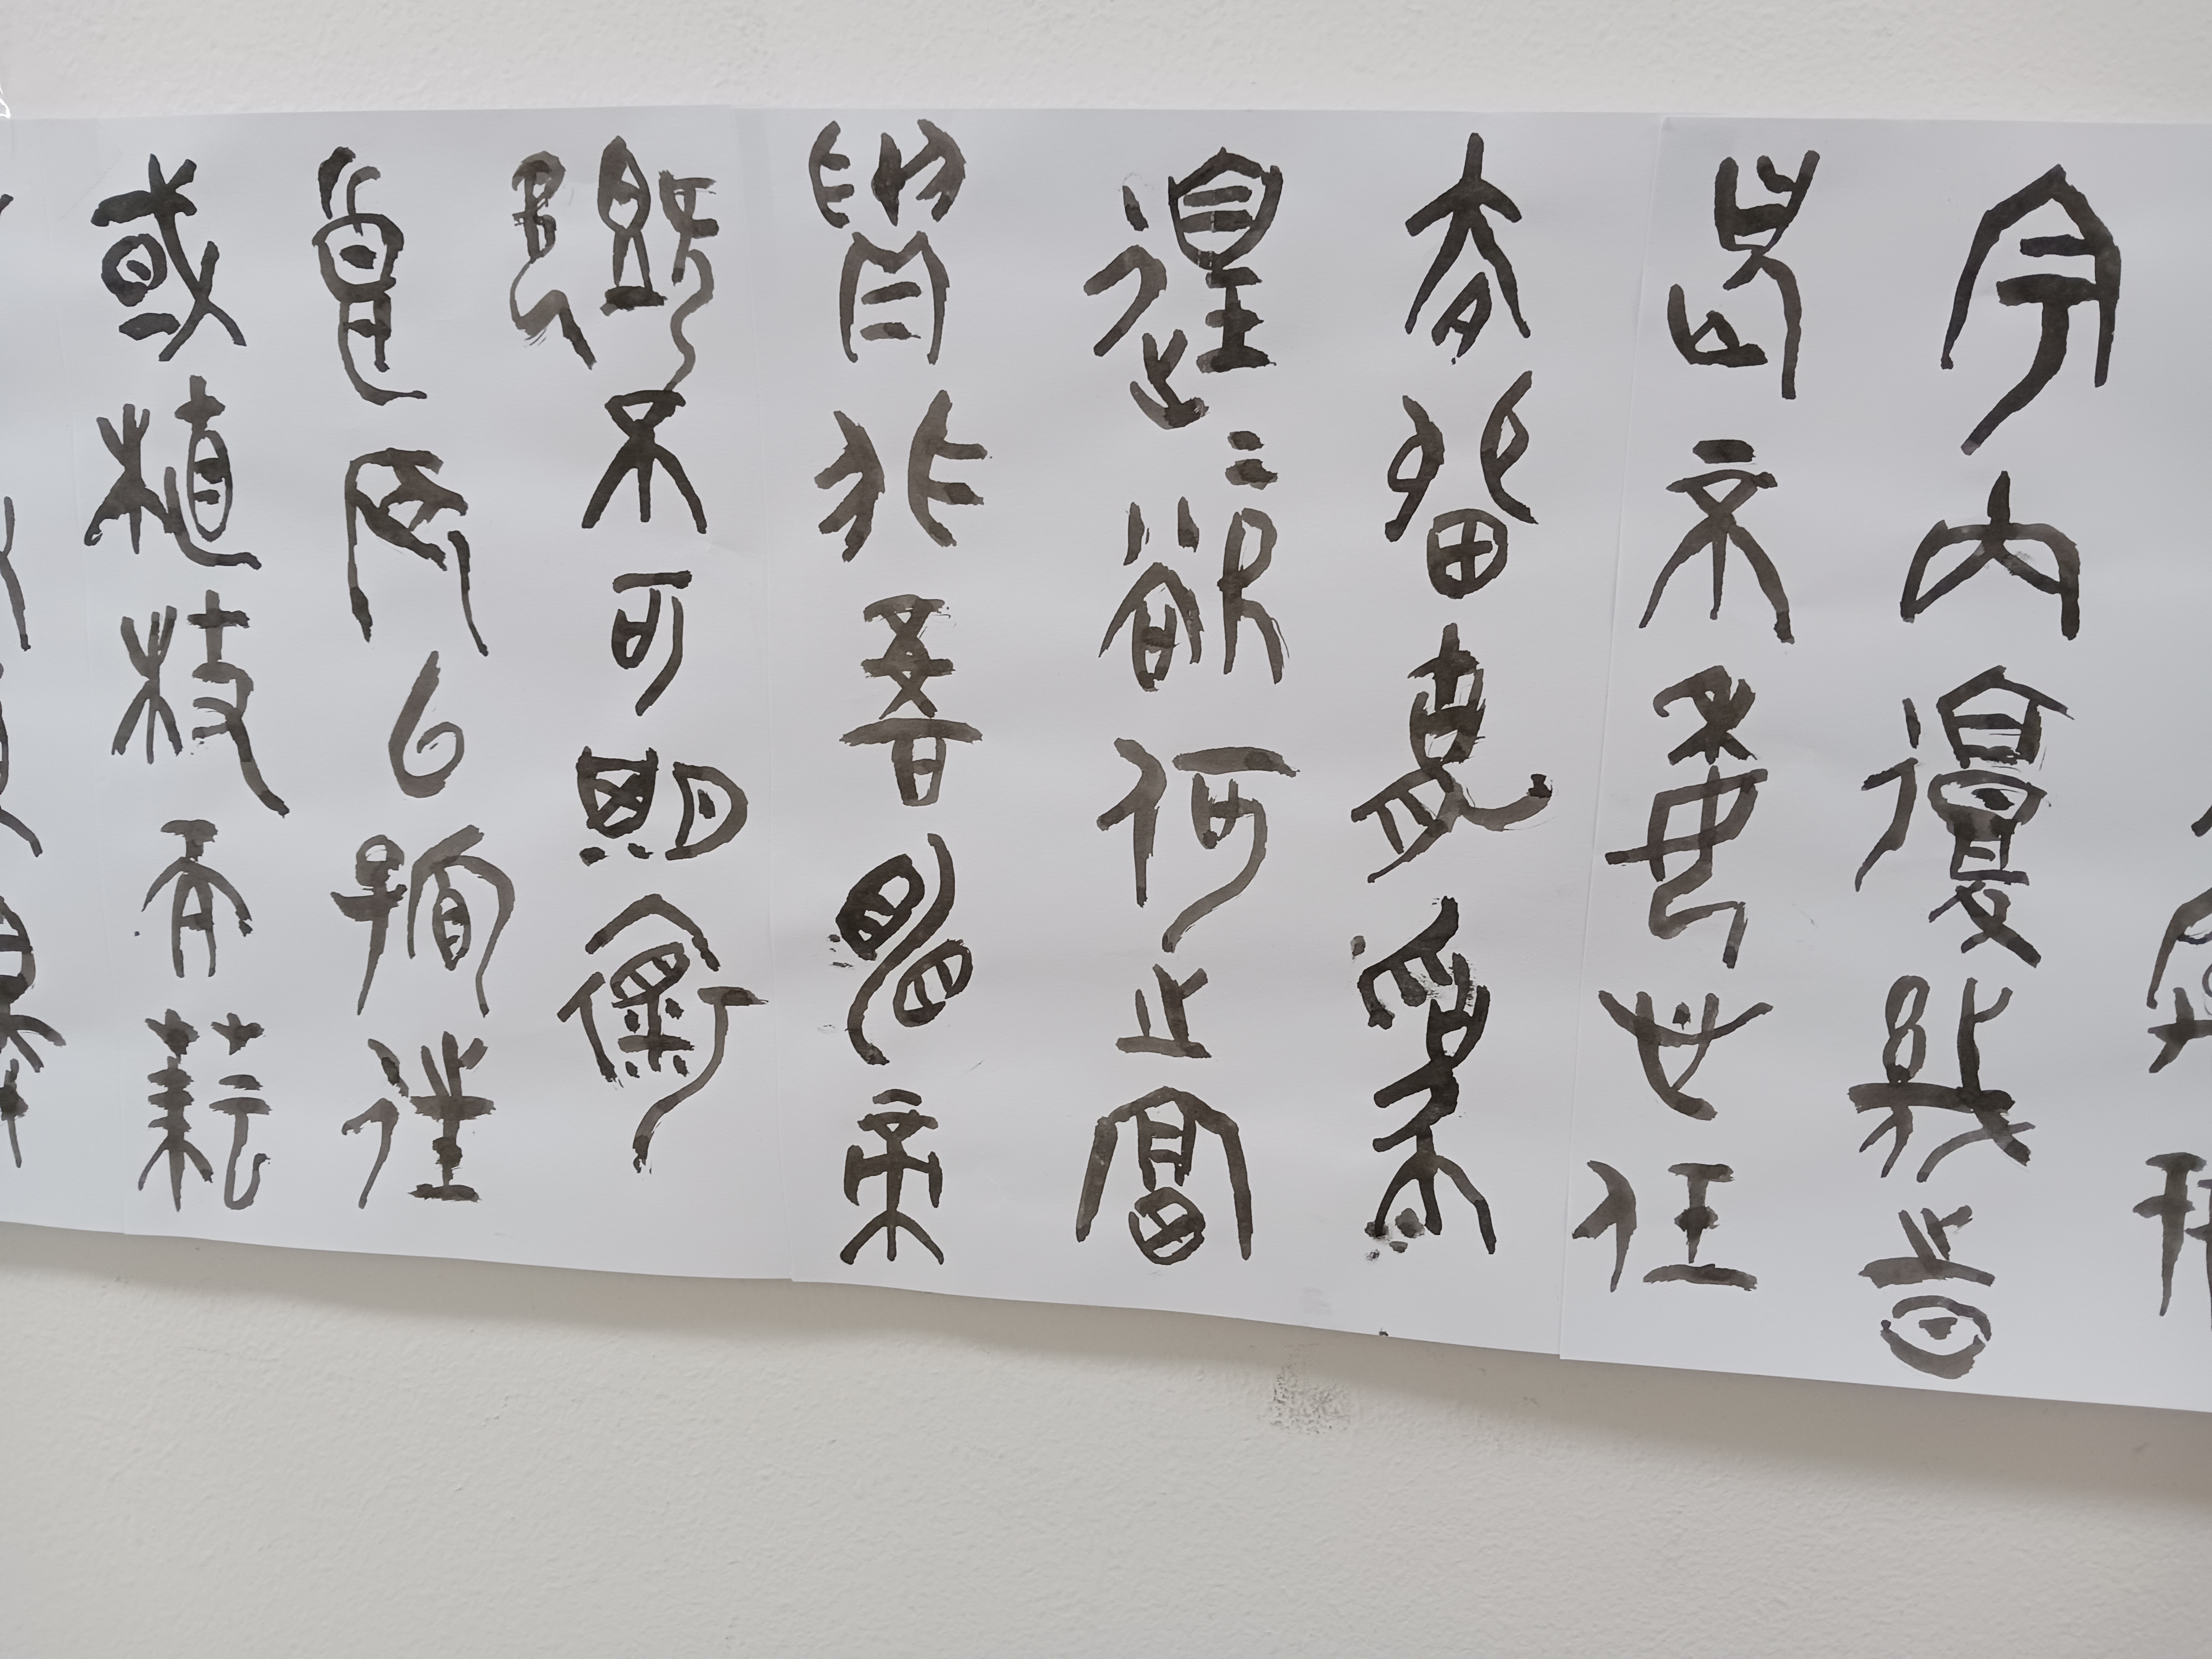 宇内復幾時
曷不委心任
去留胡為
遑〻欲何之富
貴非吾願帝
鄉不可期懷
良辰以孤往
或植杖而耘